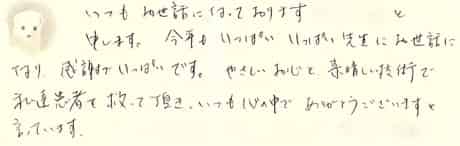 いつもお世話になっております と
申します。今年もいっぱい いっぱい 先生にお世話に
なり、感謝でいっぱいです。やさしいお心と、素晴しい技術で
私達患者を救って頂き、いつも心の中で ありがとうございますと
言っています。